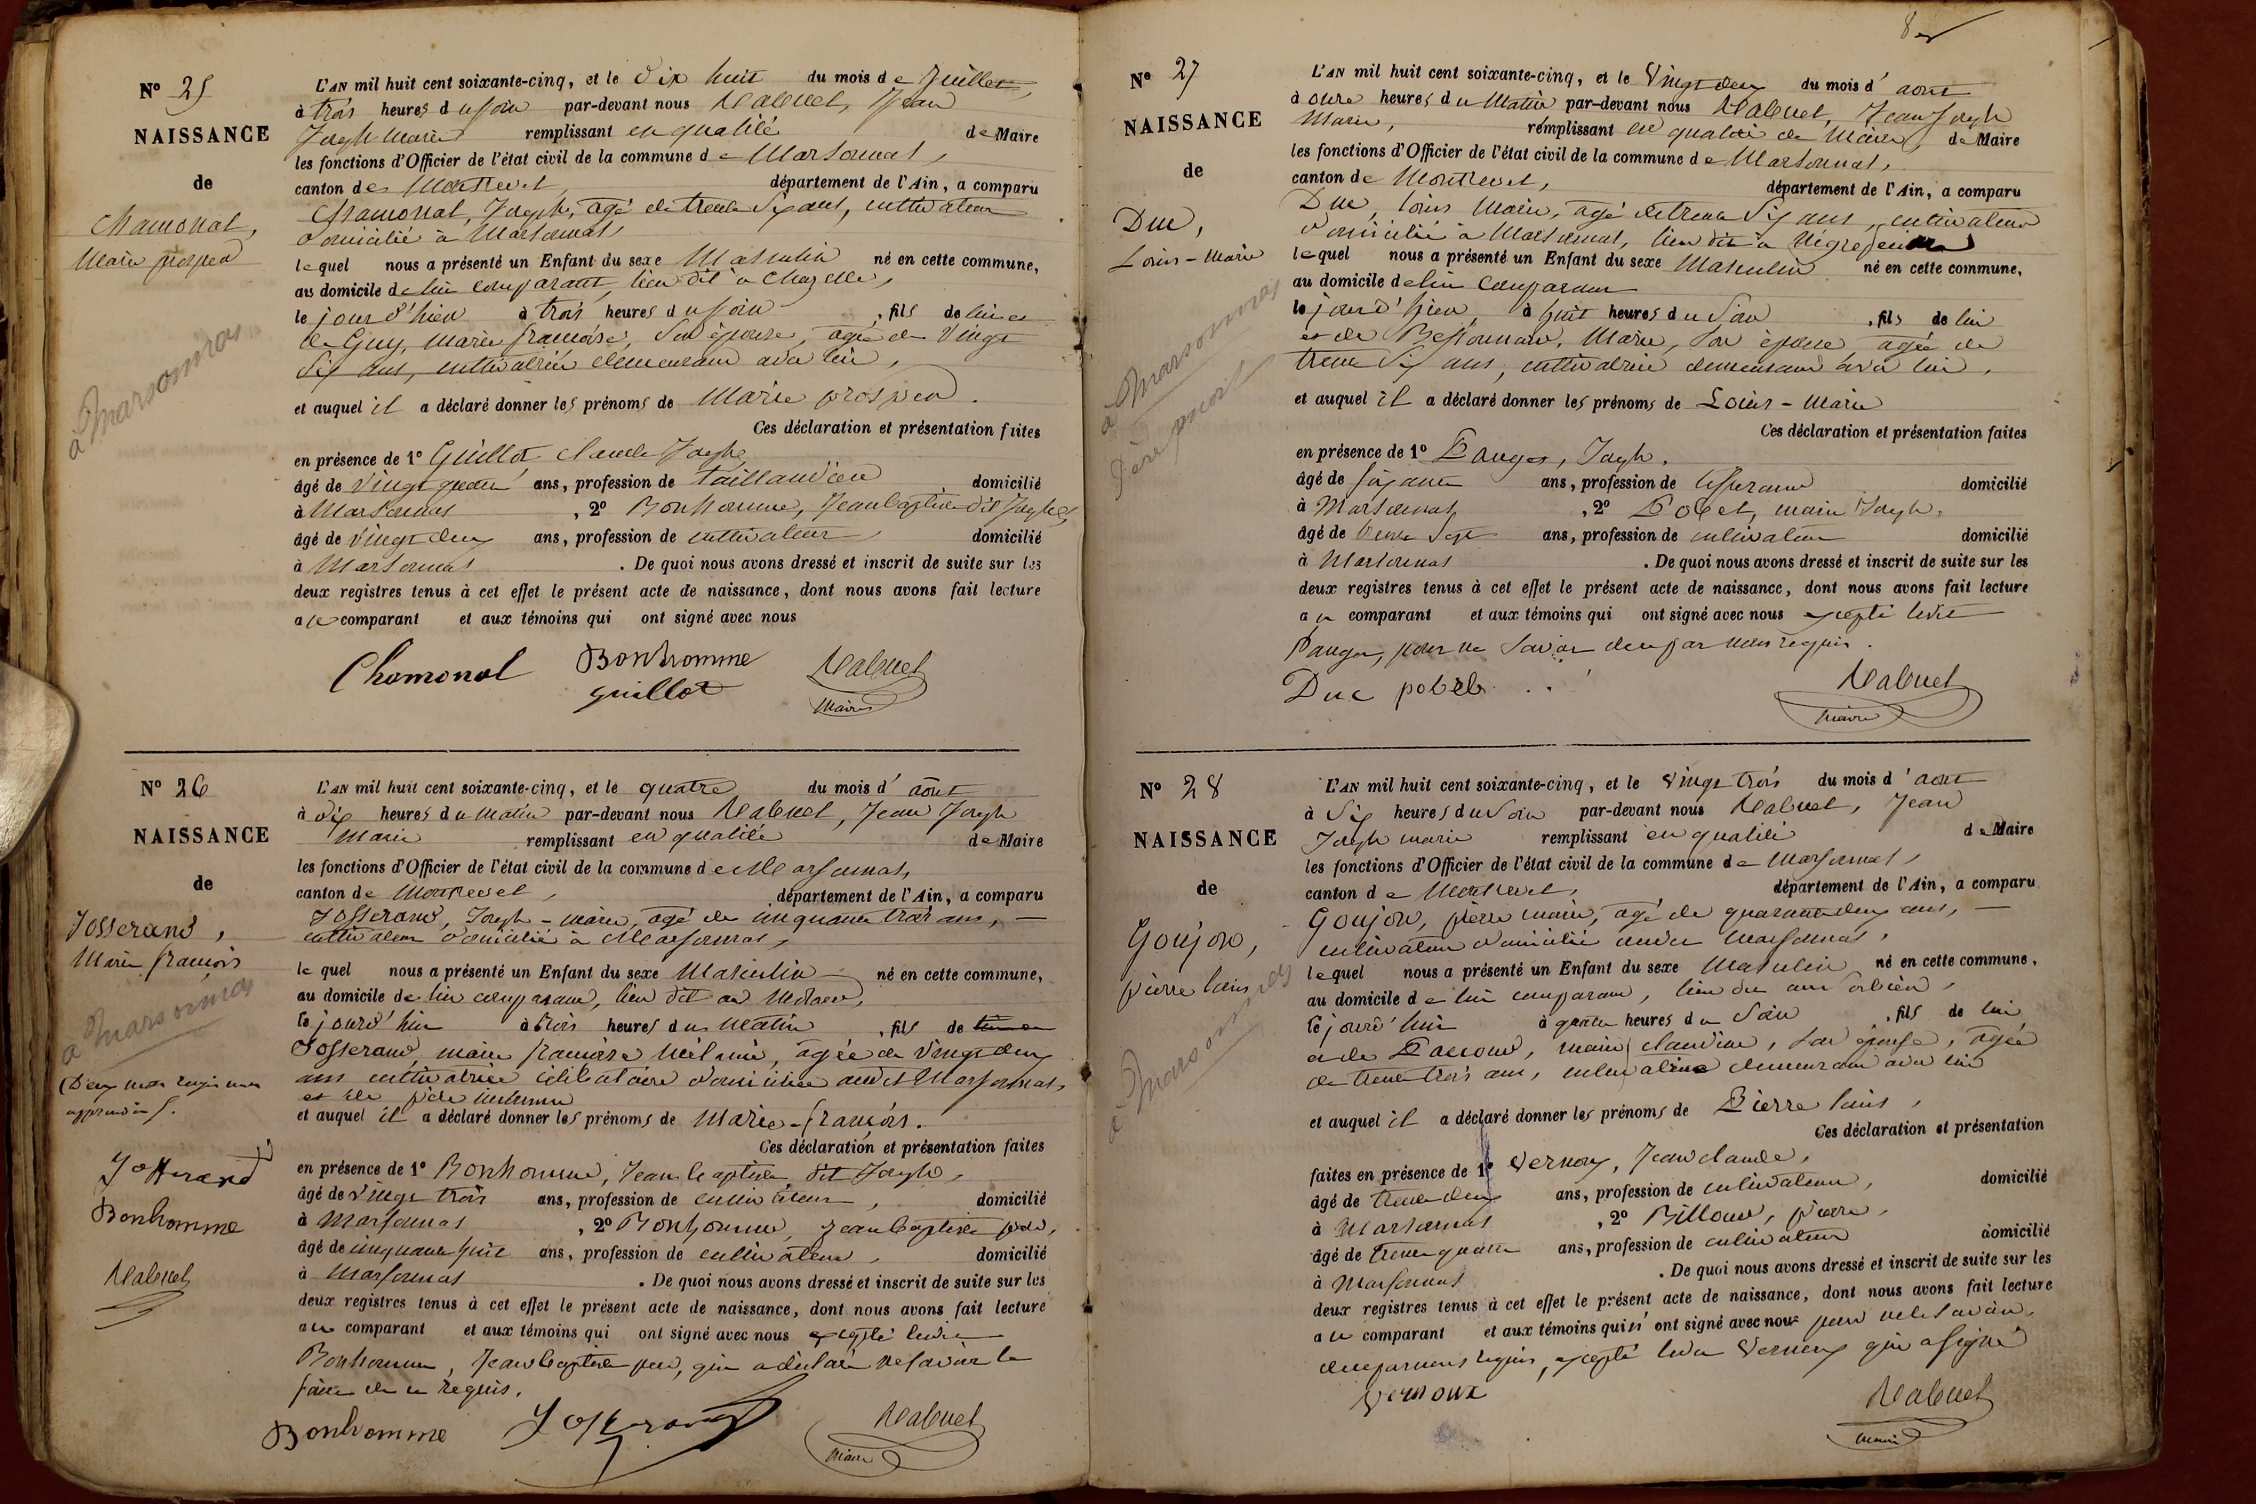 Nº 25
NAISSANCE
de
Chamonal,
Marie prosper
à Marsonnas
L'AN mil huit cent soixante-cinq, et le Dix huit du mois de Juillet,
à trois heures du soir par-devant nous Jean
Joseph Marie remplissant en qualité de Maire
les fonctions d'Officier de l'état civil de la commune de Marsonnas,
canton de Montrevel, département de l'Ain, a comparu
Chamonal, Joseph, agé de trente Six ans, cultivateur
domicilié à Marsonnas,
lequel nous a présenté un Enfant du sexe Masculin né en cette commune,
au domicile de lui comparant, lieu dit à Chazelle,
le jour d'hier à trois heures du soir, fils de lui et
de Guy, marie françoise, Son épouse, agée de Vingt
Six ans, cultivatrice demeurant avec lui,
et auquel il a déclaré donner les prénoms de Marie prosper.
Ces déclaration et présentation faites
en présence de 1º Guillot Claude Joseph
âgé de Vingt quatre ans, profession de taillandier domicilié
à Marsonnas, 2º Bonhomme, Jean Baptiste dit Joseph,
âgé de Vingt deux ans, profession de cultivateur domicilié
à Marsonnas. De quoi nous avons dressé et inscrit de suite sur les
deux registres tenus à cet effet le présent acte de naissance, dont nous avons fait lecture
au comparant et aux témoins qui ont signé avec nous
Chamonal Bonhomme
guillot Maire
Nº 26
NAISSANCE
de
Josserand,
Marie françois
à Marsonnas
(Deux mots rayés non
approuvés).
Josserand
Bonhomme
L'AN mil huit cent soixante-cinq, et le quatre du mois d'août
à dix heures du Matin par-devant nous Jean Joseph
Marie remplissant en qualité de Maire
les fonctions d'Officier de l'état civil de la commune de Marsonnas,
canton de Montrevel, département de l'Ain, a comparu
Josserand, Joseph-marie, agé de cinquante trois ans,
cultivateur domicilié à Marsonnas,
lequel nous a présenté un Enfant du sexe Masculin né en cette commune,
au domicile de lui comparant, lieu dit au
le jourd'hui à trois heures du Matin, fils de
Josserand, marie françoise Mélanie, agée de Vingt deux
ans cultivatrice célibataire domiciliée audit Marsonnas,
et de père inconnu
et auquel il a déclaré donner les prénoms de Marie-françois.
Ces déclaration et présentation faites
en présence de 1º Bonhomme, Jean Baptiste dit Joseph,
âgé de vingt trois ans, profession de cultivateur, domicilié
à Marsonnas, 2º Bonhomme, Jean Baptiste père,
âgé de cinquante huit ans, profession de cultivateur, domicilié
à Marsonnas. De quoi nous avons dressé et inscrit de suite sur les
deux registres tenus à cet effet le présent acte de naissance, dont nous avons fait lecture
au comparant et aux témoins qui ont signé avec nous excepté ledit
Bonhomme, Jean Baptiste père, qui a déclaré ne savoir le
faire de ce requis.
Bonhomme Josserand Maire
Nº 27
NAISSANCE
de
Duc,
Louis-Marie
à Marsonnas
L'AN mil huit cent soixante-cinq, et le Vingt deux du mois d'août
à onze heures du Matin par-devant nous Jean Joseph
Marie, remplissant en qualité de Maire, de Maire
les fonctions d'Officier de l'état civil de la commune de Marsonnas,
canton de Montrevel, département de l'Ain, a comparu
Duc, Louis Marie, agé de trente Six ans, cultivateur
domicilié à Marsonnas, lieu dit à
lequel nous a présenté un Enfant du sexe Masculin né en cette commune,
au domicile de lui comparant
le jour d'hier, à huit heures du Soir, fils de lui
et de Marie, son épouse agée de
trente Six ans, cultivatrice demeurant avec lui,
et auquel il a déclaré donner les prénoms de Louis-Marie
Ces déclaration et présentation faites
en présence de 1º Pauget, Joseph,
âgé de soixante ans, profession de domicilié
à Marsonnas, 2º Pobel, marie Joseph,
âgé de trente Sept ans, profession de cultivateur domicilié
à Marsonnas. De quoi nous avons dressé et inscrit de suite sur les
deux registres tenus à cet effet le présent acte de naissance, dont nous avons fait lecture
au comparant et aux témoins qui ont signé avec nous excepté ledit
Pauget, pour ne Savoir de ce par nous requis.
Duc pobel Maire
Nº 28
NAISSANCE
de
Goujon,
pierre louis
à Marsonnas
L'AN mil huit cent soixante-cinq, et le Vingt trois du mois d'août
à Six heures du Soir par-devant nous Jean
Joseph marie remplissant en qualité de Maire
les fonctions d'Officier de l'état civil de la commune de Marsonnas,
canton de Montrevel, département de l'Ain, a comparu
Goujon, pierre marie, agé de quarante deux ans,
cultivateur domicilié audit Marsonnas,
lequel nous a présenté un Enfant du sexe Masculin né en cette commune,
au domicile de lui comparant, lieu dit aux
le jourd'hui à quatre heures du Soir, fils de lui
et de marie claudine, Son épouse, agée
de trente trois ans, cultivatrice demeurant avec lui
et auquel il a déclaré donner les prénoms de Pierre louis,
Ces déclaration et présentation
faites en présence de 1º Vernoux, Jean claude,
âgé de trente deux ans, profession de cultivateur, domicilié
à Marsonnas, 2º Billoud, pierre,
âgé de trente quatre ans, profession de cultivateur domicilié
à Marsonnas. De quoi nous avons dressé et inscrit de suite sur les
deux registres tenus à cet effet le présent acte de naissance, dont nous avons fait lecture
au comparant et aux témoins qui n'ont signé avec nous pour ne le savoir,
de ce par nous requis, excepté ledit Vernoux qui a signé
Vernoux Maire